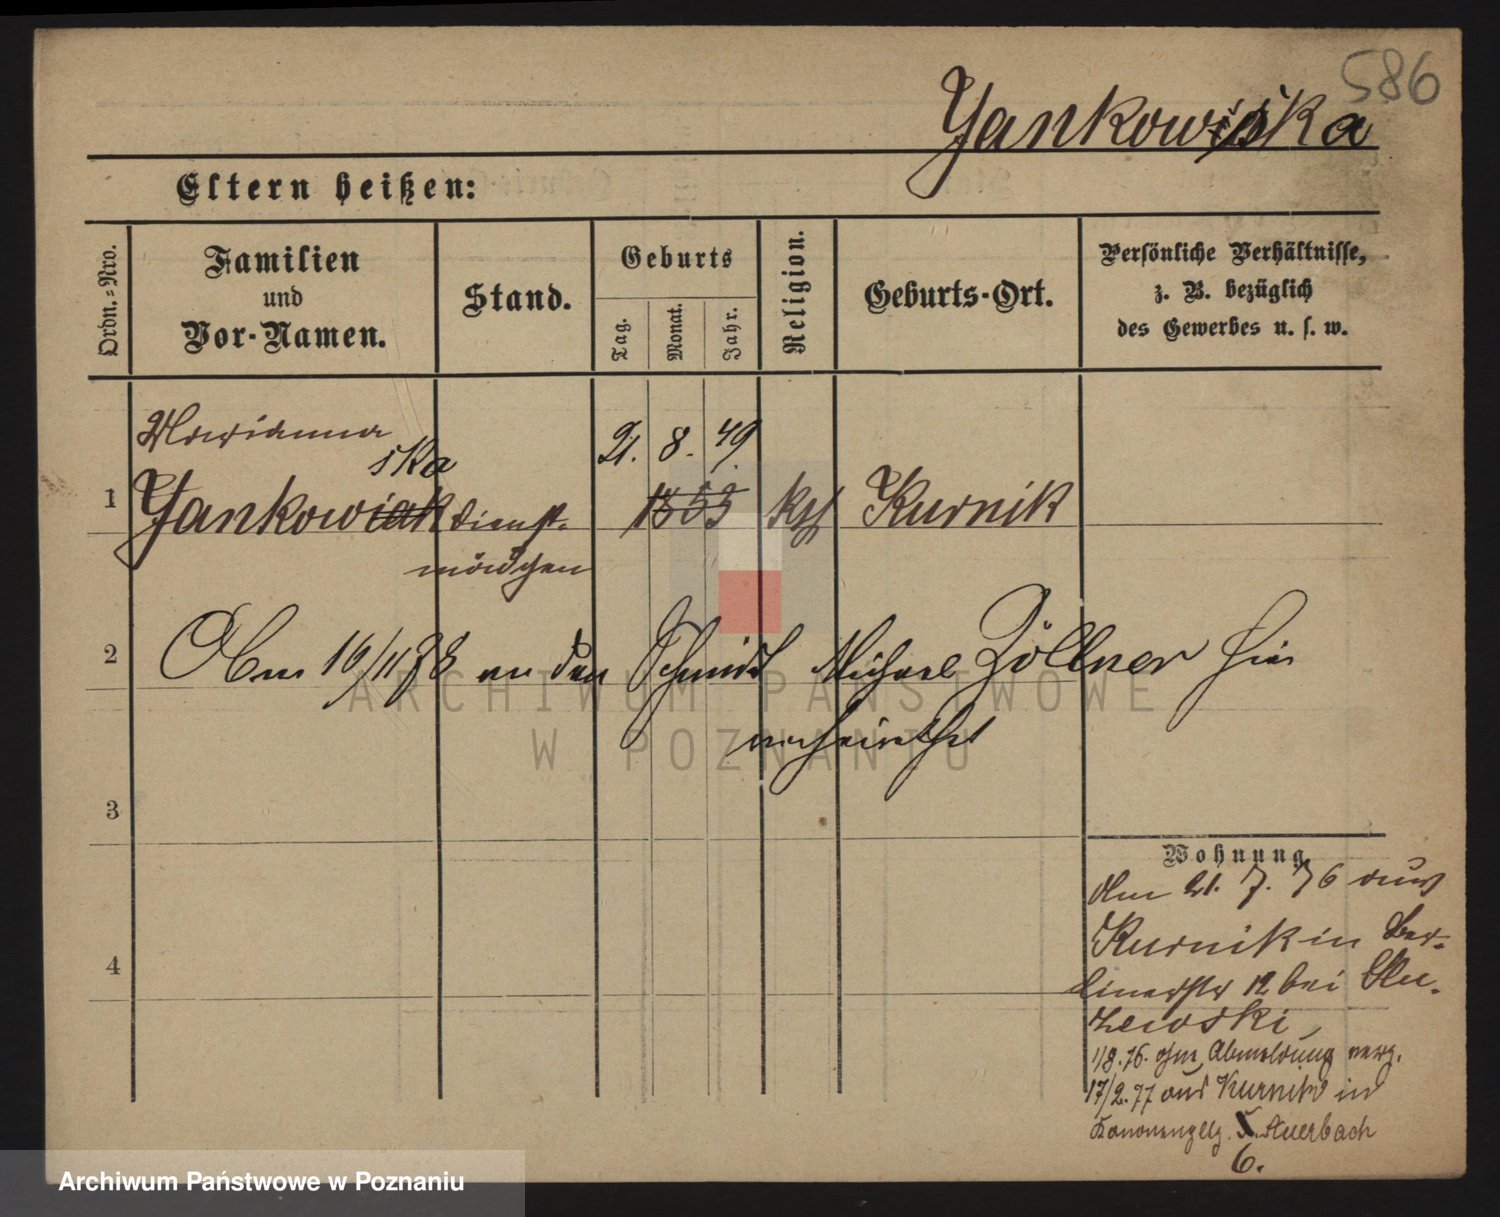 586
Yankowska
Eltern heißen:
Ordn.-Nro.
Familien
und
Vor-Namen.
Stand.
Geburts
Tag.
Monat.
Jahr.
Religion.
Geburts-Ort.
Persönliche Verhältnisse,
z. B. bezüglich
des Gewerbes u. s. w.
Marianna
ska
21. 8. 49
1 Yankowiak Dienst- 1853 kth Kurnik
mädchen
2 Am 16/11 78 an den Schmidt Michael Zöllner hier
verheirathet
3
4
Wohnung
Am 21. 7. 76 aus
Kurnik in Ber-
linerstr 12 bei
1/8. 76. ohne Abmeldung verz.
17/2. 77 aus Kurnik in
Kanonenpltz. Auerbach
6.
ARCHIWUM PAŃSTWOWE
W POZNANIU
Archiwum Państwowe w Poznaniu